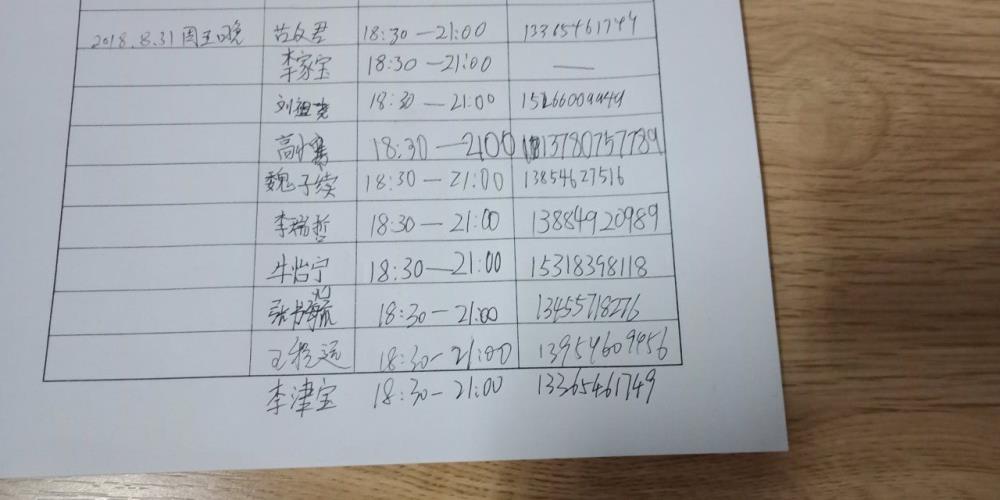 2018.8.31周五晚 苗文君 18:30—21:00 13365461749
李家宝 18:30—21:00 —
刘祖尧 18:30—21:00 15266009949
高 18:30—2100 13780757789
魏子续 18:30—21:00 13854627516
李瑞哲 18:30—21:00 13884920989
牛怡宁 18:30—21:00 15318398118
张书毓 18:30—21:00 13455718276
王程远 18:30—21:00 13954609456
李津宝 18:30—21:00 13365461749